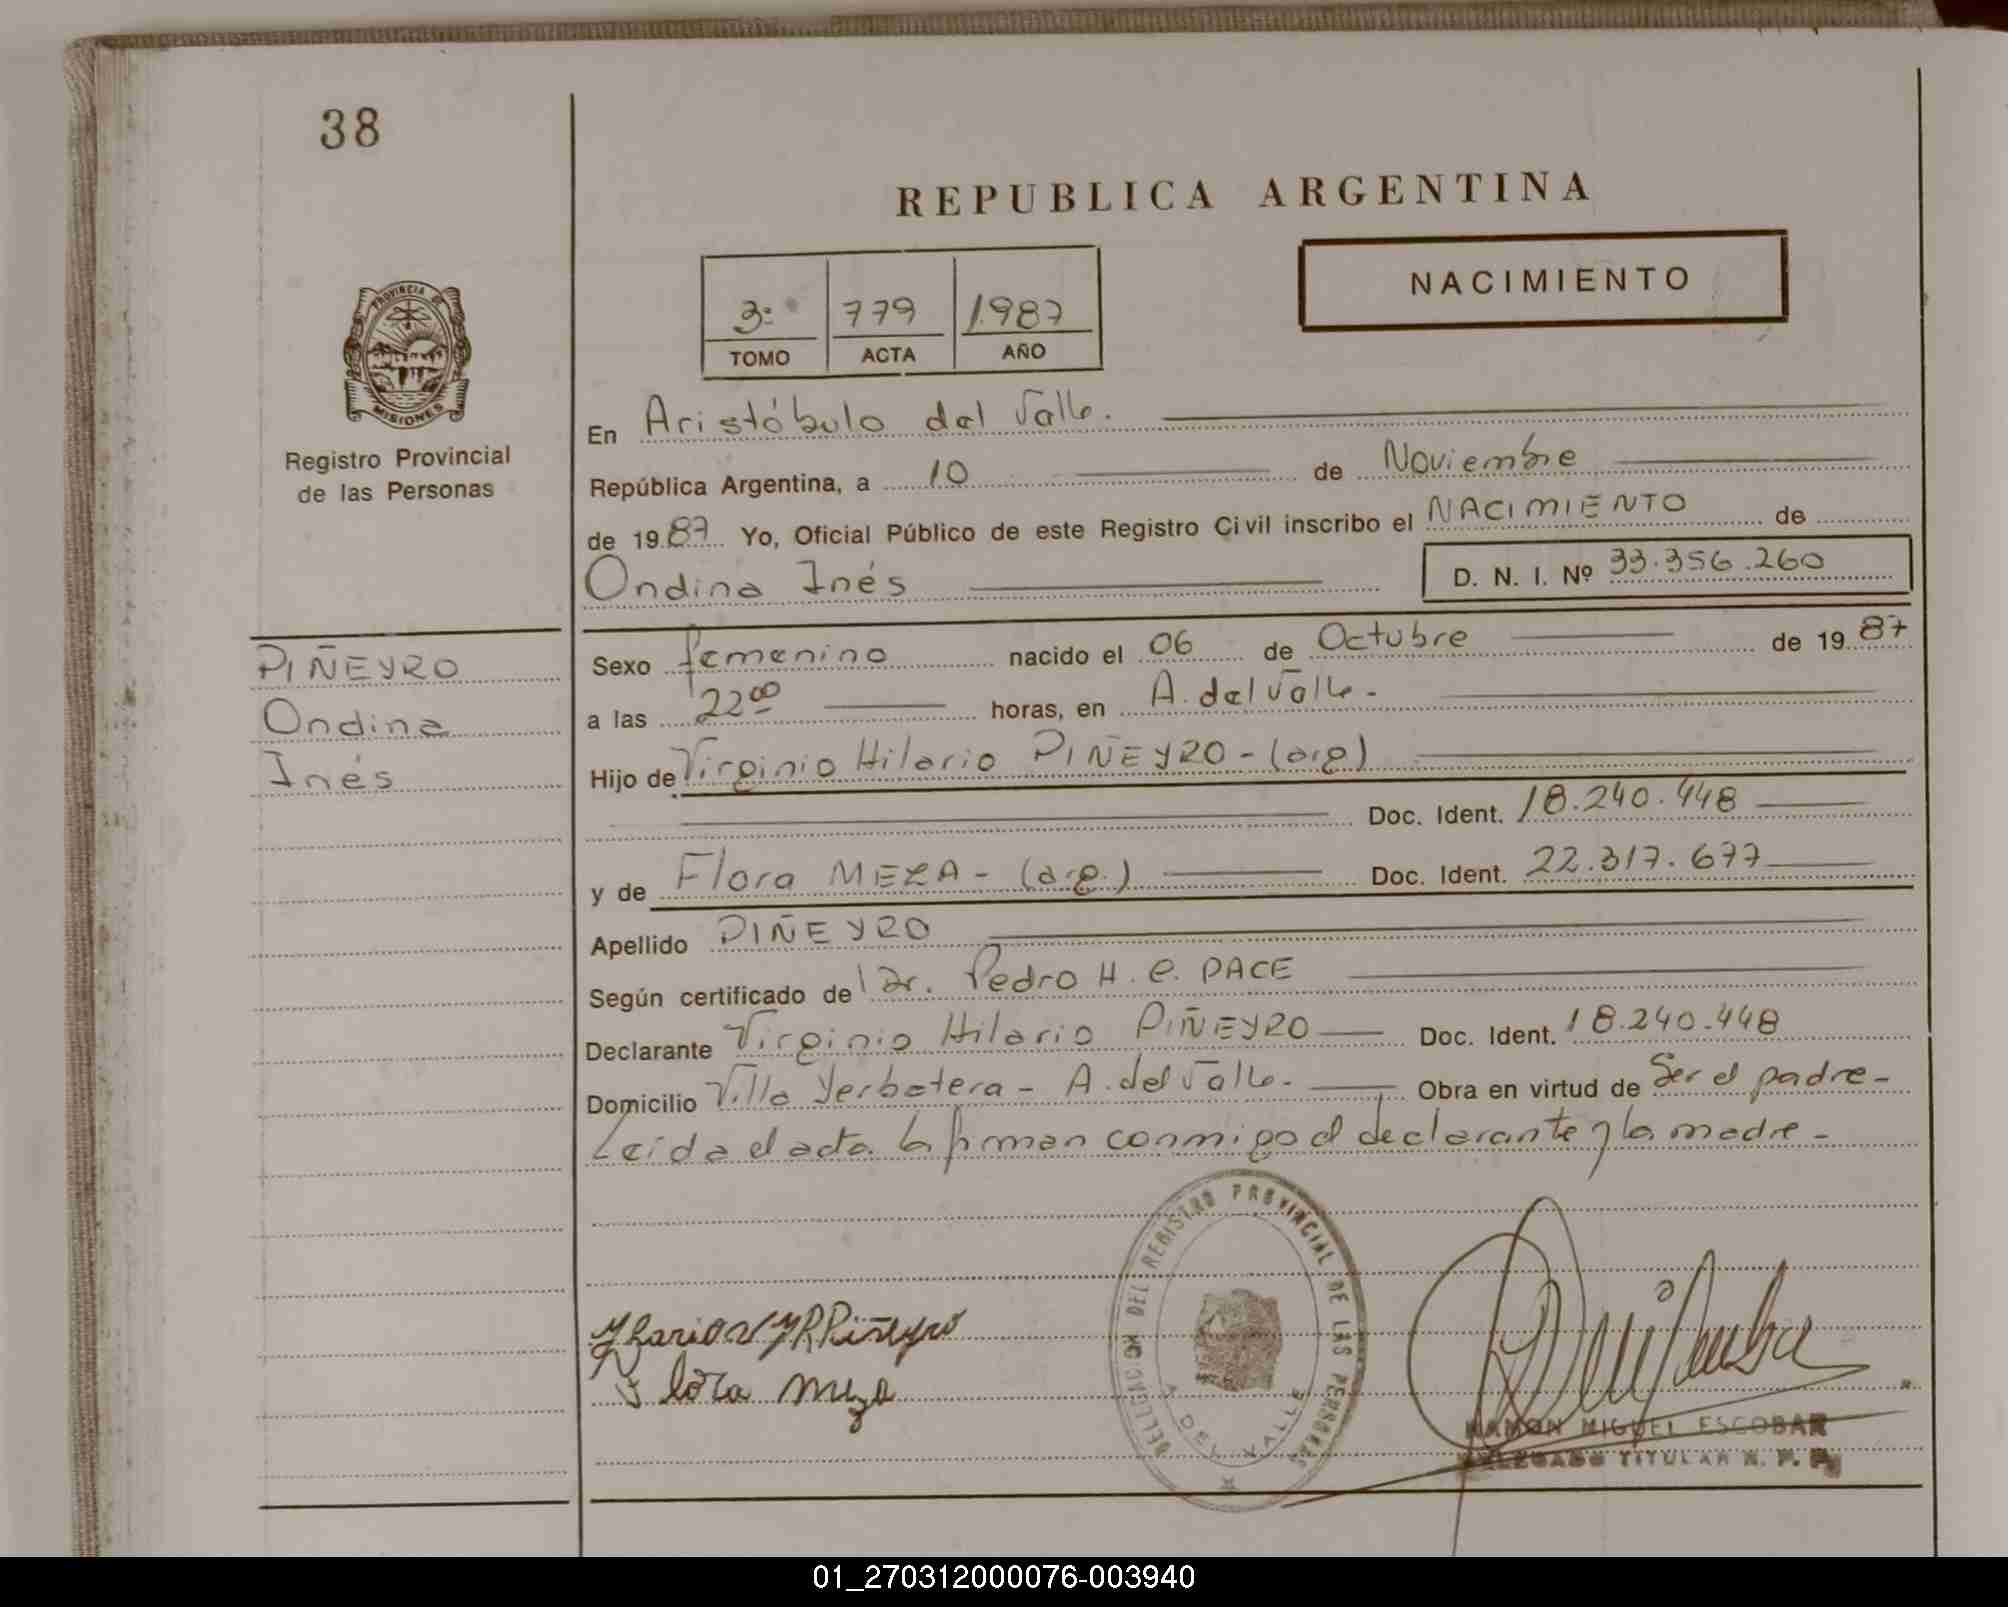 38
REPUBLICA ARGENTINA
NACIMIENTO
3º 779 1.987
TOMO ACTA AÑO
PROVINCIA DE
MISIONES
Registro Provincial
de las Personas
En Aristóbulo del Valle.
República Argentina, a 10 de Noviembre
de 1987 Yo, Oficial Público de este Registro Civil inscribo el NACIMIENTO de
Ondina Inés D. N. I. Nº 33.356.260
PIÑEYRO
Ondina
Inés
Sexo femenino nacido el 06 de Octubre de 1987
a las 22⁰⁰ horas, en A. del Valle.-
Hijo de Virginio Hilario PIÑEYRO - (arg)
Doc. Ident. 18.240.448
y de Flora MEZA - (arg.) Doc. Ident. 22.317.677
Apellido PIÑEYRO
Según certificado de Dr. Pedro H. C. PACE
Declarante Virginio Hilario PIÑEYRO Doc. Ident. 18.240.448
Domicilio Villa Yerbatera - A. del Valle.- Obra en virtud de Ser el padre-
Leída el acta la firman conmigo el declarante y la madre-
DELEGACION DEL REGISTRO PROVINCIAL DE LAS PERSONAS
A. DEL VALLE
Piñeyro
Flora Meza
RAMON MIGUEL ESCOBAR
DELEGADO TITULAR R. P. P.
01_270312000076-003940